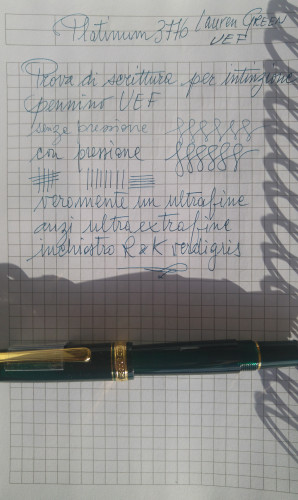 Platinum 3776 Lauren GREEN
UEF
Prova di scrittura per intinzione
pennino UEF
senza pressione
con pressione
veromente un ultrafine
anzi ultraextrafine
inchiostro R&K verdigris